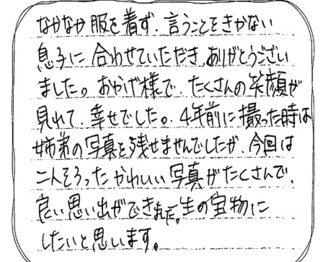 なかなか服を着ず、言うことをきかない
息子に合わせていただき、ありがとうござい
ました。おかげ様で、たくさんの笑顔が
見れて、幸せでした。4年前に撮った時は
姉弟の写真を残せませんでしたが、今回は
二人そろったかわいい写真がたくさんで、
良い思い出ができました。生の宝物に
したいと思います。